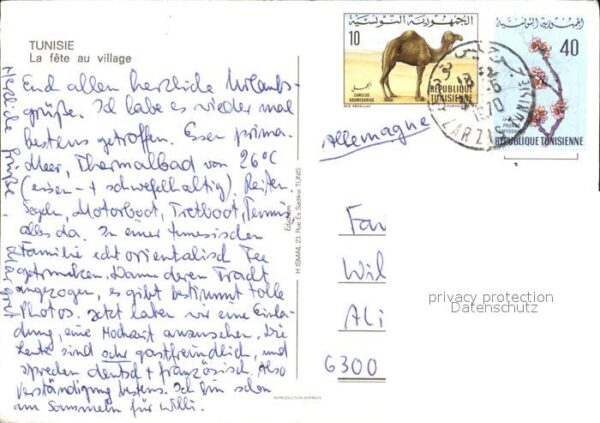 TUNISIE
La fête au village
Euch allen herzliche Urlaubs-
grüße. Ich habe es wieder mal
bestens getroffen. Essen prima.
Meer, Thermalbad von 26°C
(eisen- + schwefelhaltig). Reiten,
Segeln, Motorboot, Tretboot, Tennis
alles da. In einer tunesischen
Familie echt orientalisch Tee
getrunken. Dann deren Tracht
angezogen, es gibt bestimmt tolle
Photos. Jetzt haben wir eine Einla-
dung, eine Hochzeit anzusehen. Die
Leute sind sehr gastfreundlich, und
sprechen deutsch + französisch. Also
Verständigung bestens. Ich bin schon
am Sammeln für Willi.
Herzliche Grüße
Edition
H. ISMAIL 23, Rue Es Sadikia TUNIS
الجمهورية التونسية
10
الجمل
CAMELUS
DROMEDARIUS
REPUBLIQUE
TUNISIENNE
الجمهورية التونسية
40
REPUBLIQUE TUNISIENNE
ZARZIS
Allemagne
Fam
Wil
Ali
6300
privacy protection
Datenschutz